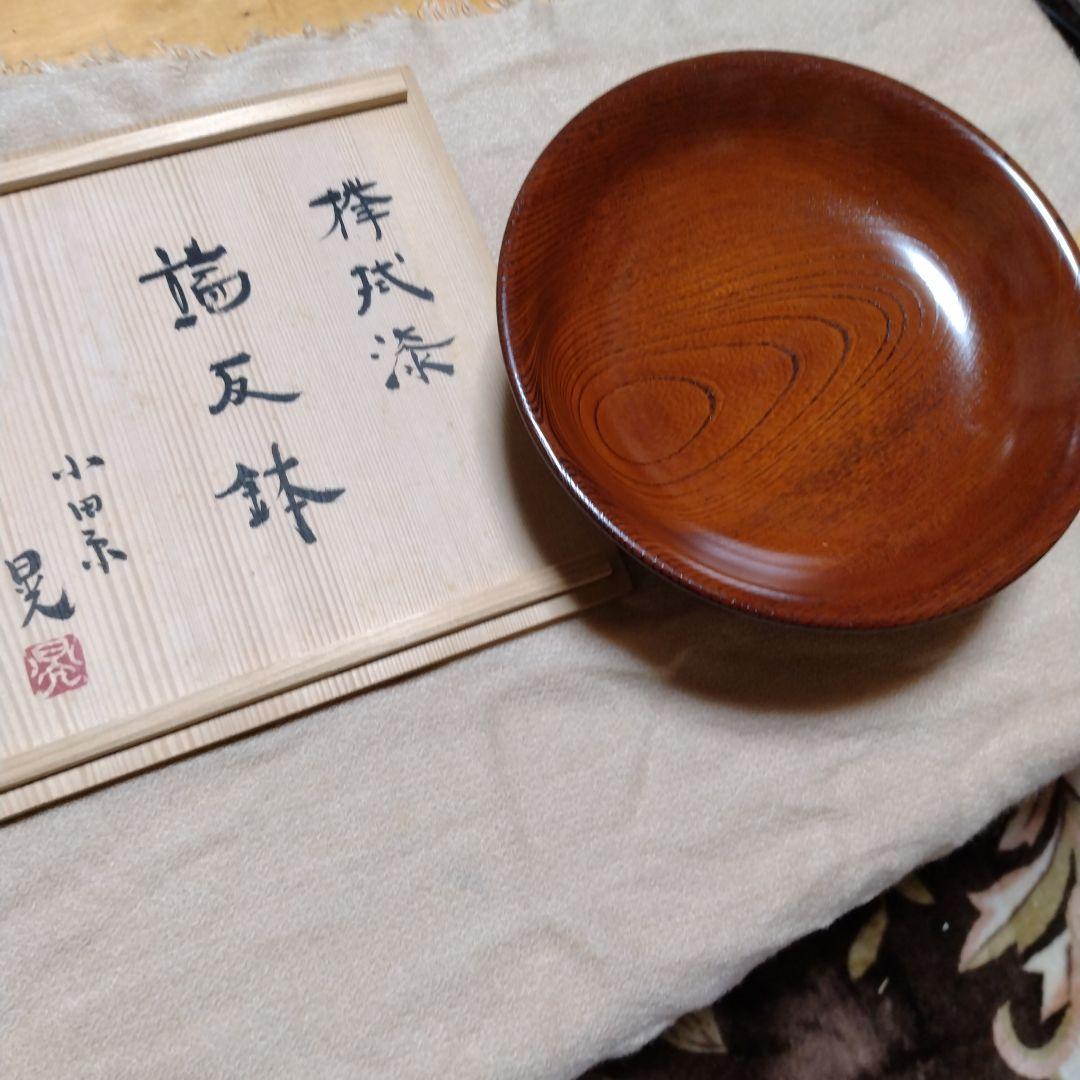 欅拭漆
端反鉢
小田原
晃
晃